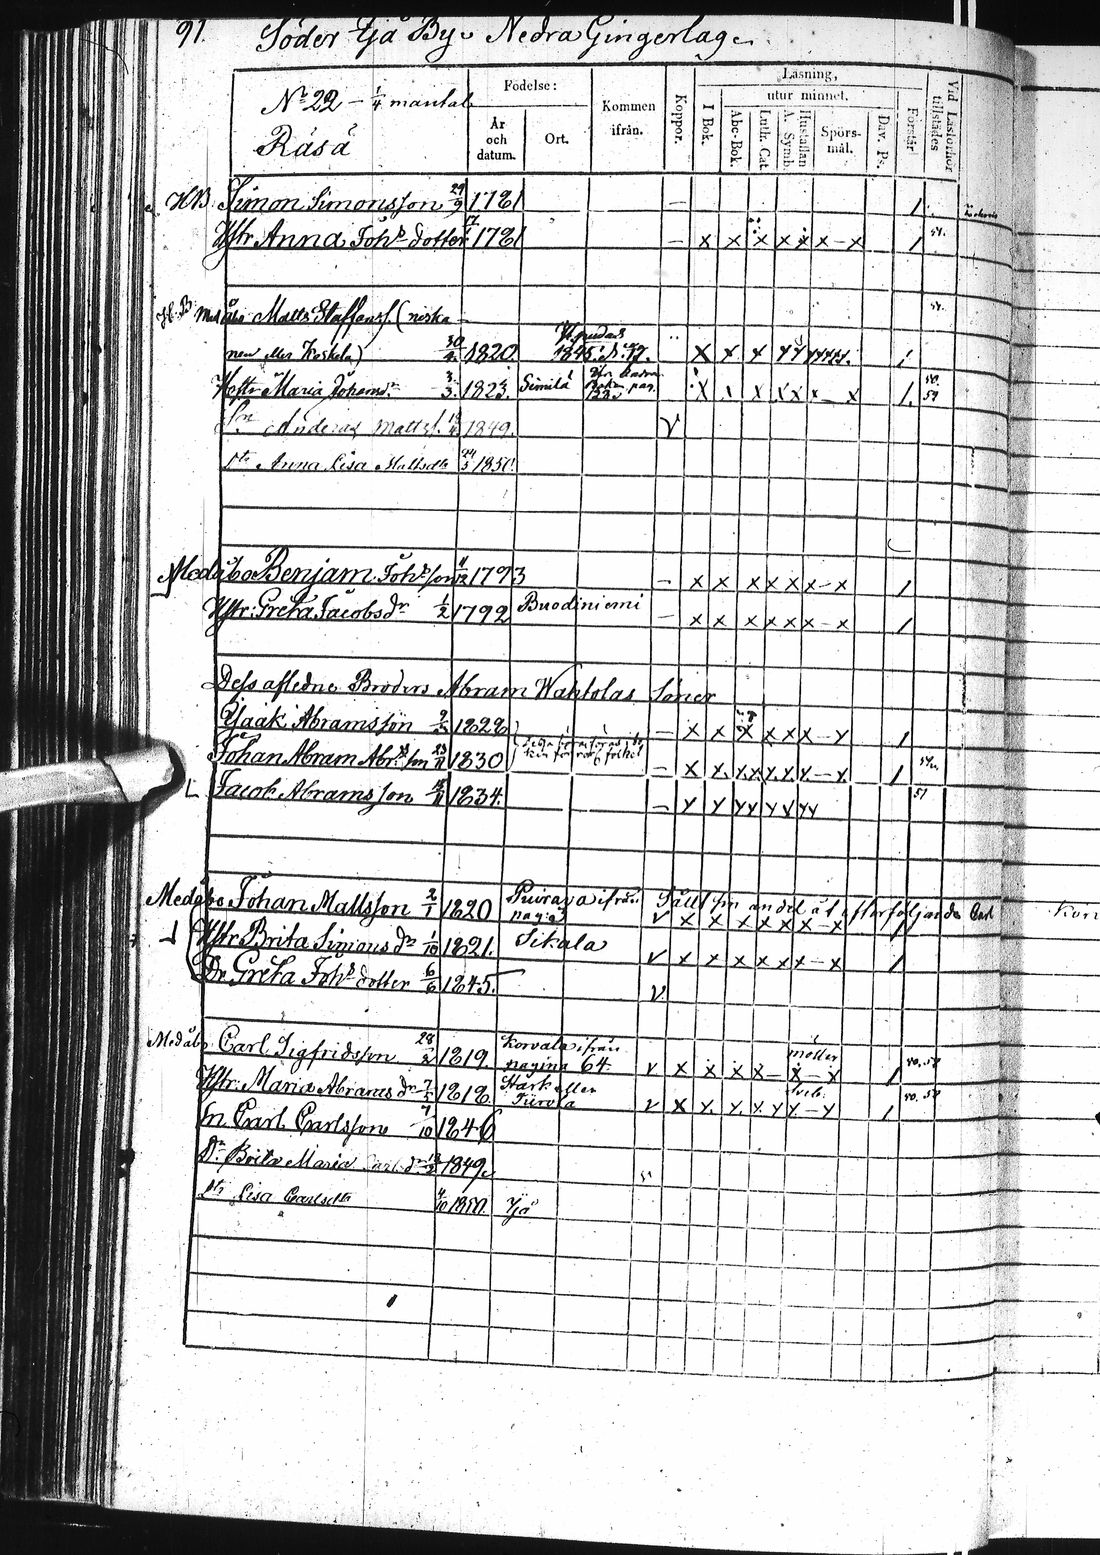 91. Söder Yjä By. Nedra Gingerlag.
No 22 — 1/4 mantal
Räsä
Födelse:
År och datum.
Ort.
Kommen ifrån.
Koppor.
Läsning,
I Bok.
utur minnet.
Abc-Bok.
Luth. Cat.
Hustaflan A. Symb.
Spörs-mål.
Dav. Ps.
Förstår
Vid Läsförhör tillstädes
HB. Simon Simonsson 29/9 1781 — 1
Hstr Anna Joh:s dotter 1781 — x x x x x x - x 1 54.
H.B. Medåbo Matts Staffanss. (niska- 54.
nen eller Koskela) 30/4 1820 1845
Hstr Maria Johansdr 3/3 1823. Similä 50. 59
Sn Anders Mattss. 1849. v
Dtr Anna Lisa Mattsdtr 24/5 1850.
Medåbo Benjam. Joh:sson 1793 — x x x x x x - x 1
Hstr: Greta Jacobsdr 1/2 1792 Buodiniemi — x x x x x x - x 1
Dess afledne Broders Abram Wahtolas Söner
Isaak Abramsson 1828 — x x x x x x - x 1
Johan Abram Abr:sson 23/11 1830 — 1 54.
L Jacob Abramsson 1834. — 51
Medåbo Johan Mattsson 2/1 1820 Puirava ifrån Sålt sin andel åt efterföljande Carl
pagin v x x x x x x - x
Hstr Brita Simonsdr 1/10 1821. Sikala v x x x x x x - x 1
Dr Greta Joh:s dotter 6/6 1845. v
Medåbo Carl Sigfridsson 28/2 1819. Korvala ifrån
pagina 64. v x x x x - x - x 1 50. 58
Hstr Maria Abramsdr 1818 Stark eller
Turvola v x x x x x x - x 1 50. 58
Sn Carl Carlsson 7/10 1846
Dr Brita Maria Carlsdr 1849.
Dtr Lisa Carlsdtr 4/10 1850. Yjä